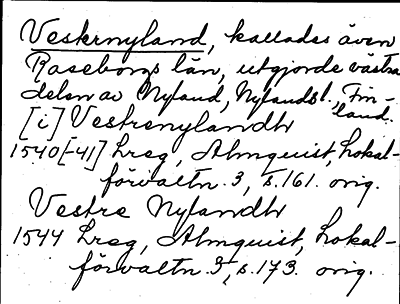 Vesternyland, kallades även
Raseborgs län, utgjorde västra
delen av Nyland, Nylands l. Fin-
land.
[i] Vestrenylandh
1540[-41] Lreg, Almquist, Lokal-
förvaltn. 3, s. 161. orig.
Vestre Nylandh
1544 Lreg, Almquist, Lokal-
förvaltn. 3, s. 173. orig.